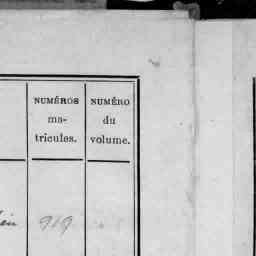 NUMÉROS
ma-
tricules.
NUMÉRO
du
volume.
919